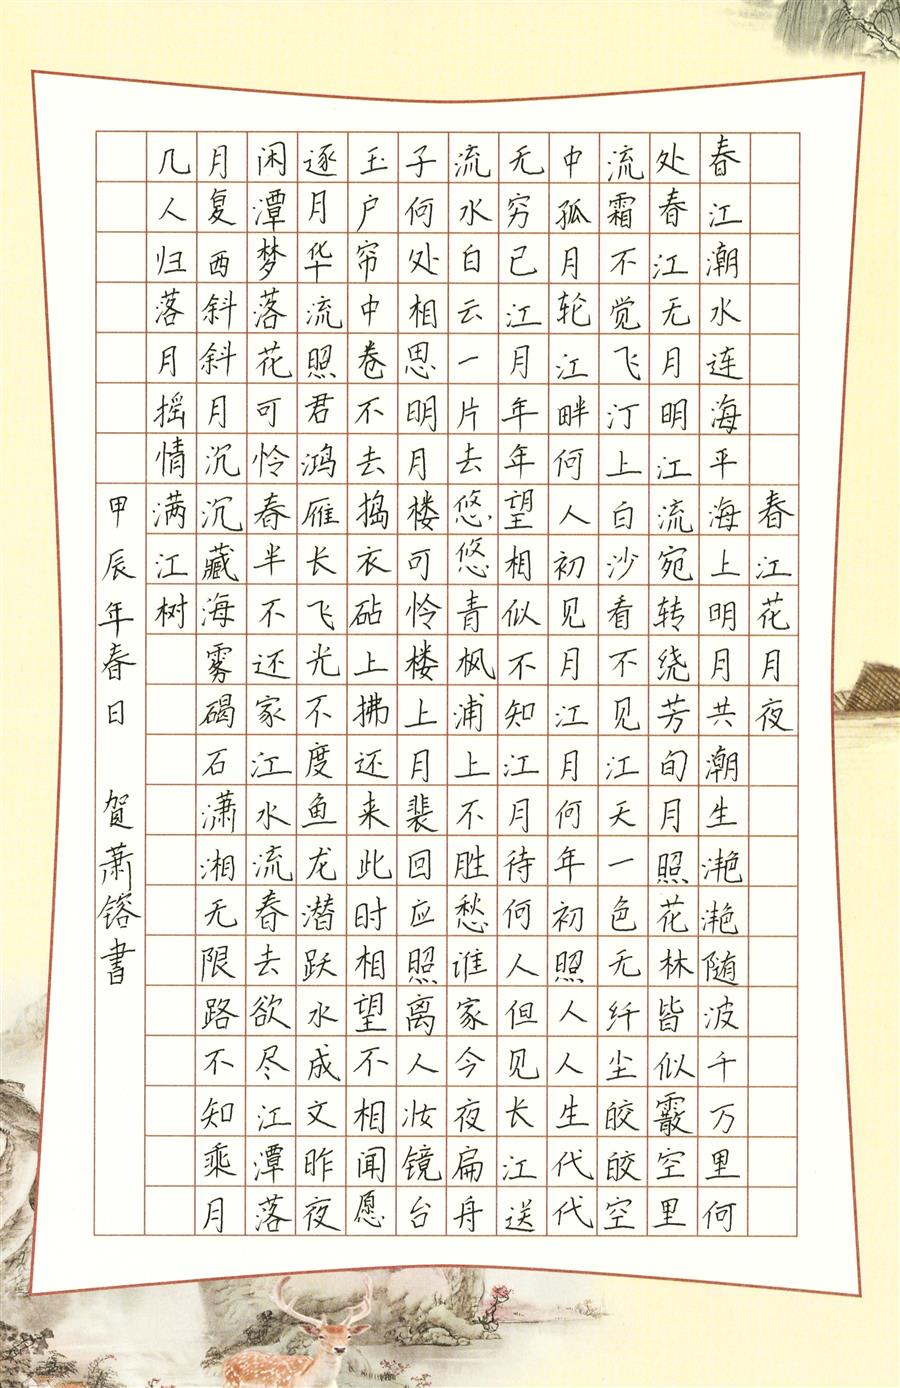 春江花月夜
春江潮水连海平海上明月共潮生滟滟随波千万里何
处春江无月明江流宛转绕芳旬月照花林皆似霰空里
流霜不觉飞汀上白沙看不见江天一色无纤尘皎皎空
中孤月轮江畔何人初见月江月何年初照人人生代代
无穷已江月年年望相似不知江月待何人但见长江送
流水白云一片去悠悠青枫浦上不胜愁谁家今夜扁舟
子何处相思明月楼可怜楼上月裴回应照离人妆镜台
玉户帘中卷不去捣衣砧上拂还来此时相望不相闻愿
逐月华流照君鸿雁长飞光不度鱼龙潜跃水成文昨夜
闲潭梦落花可怜春半不还家江水流春去欲尽江潭落
月复西斜斜月沉沉藏海雾碣石潇湘无限路不知乘月
几人归落月摇情满江树
甲辰年春日 贺萧镕書